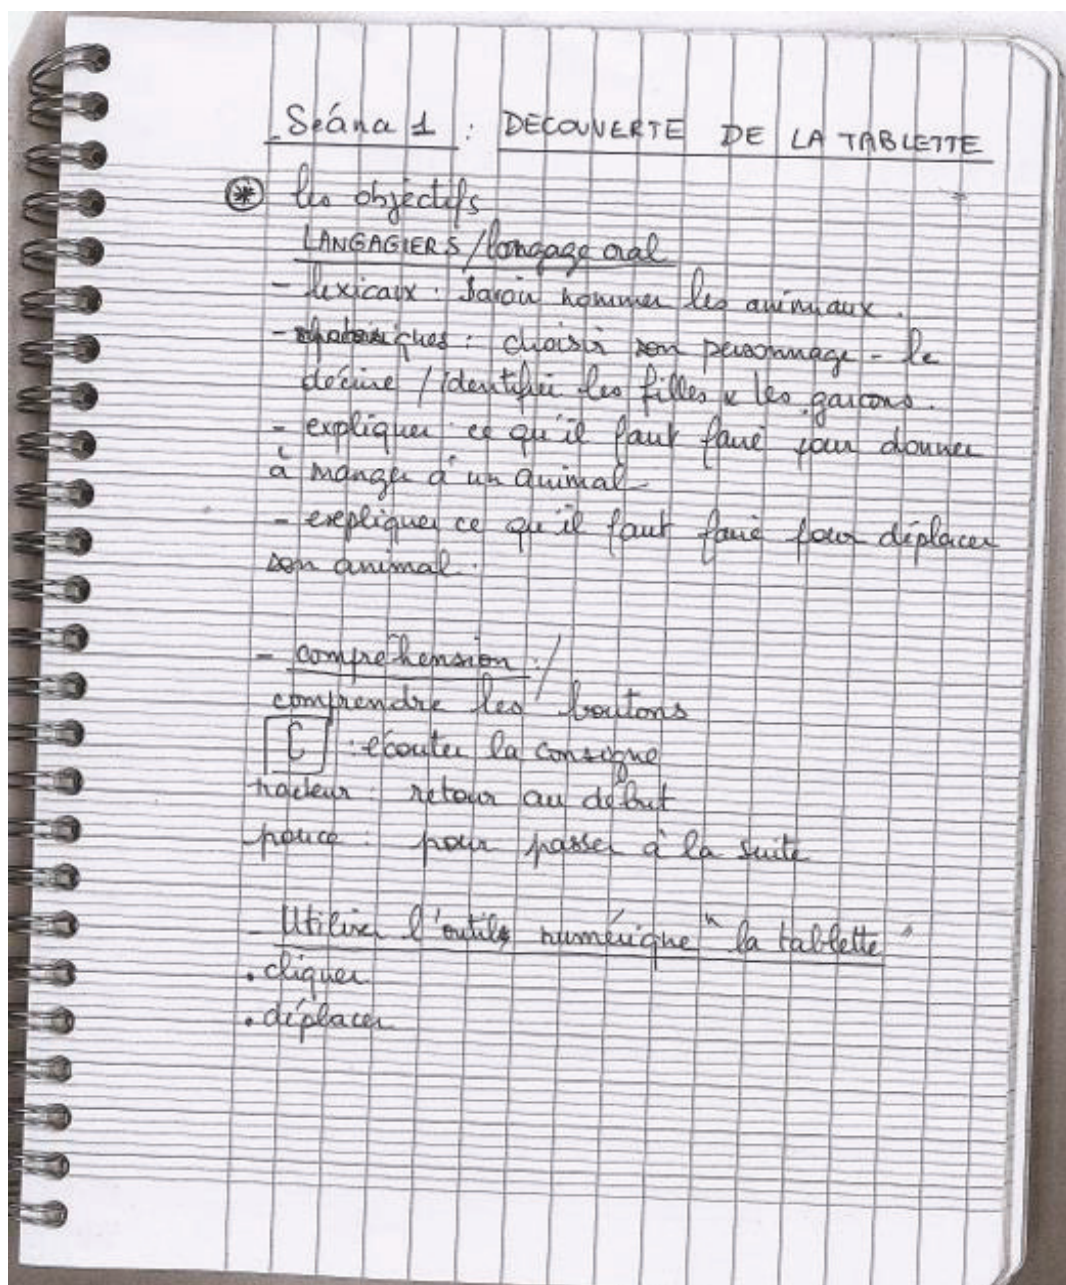 - Séance 1 : DECOUVERTE DE LA TABLETTE
* les objectifs
LANGAGIERS / langage oral
- lexicaux : savoir nommer les animaux.
- : choisir son personnage - le
décrire / identifier les filles x les garçons.
- expliquer ce qu'il faut faire pour donner
à manger à un animal
- expliquer ce qu'il faut faire pour déplacer
son animal.
- compréhension : /
comprendre les boutons
C : écouter la consigne
tracteur : retour au début
pouce : pour passer à la suite
- Utiliser l'outils numérique "la tablette"
. cliquer
. déplacer